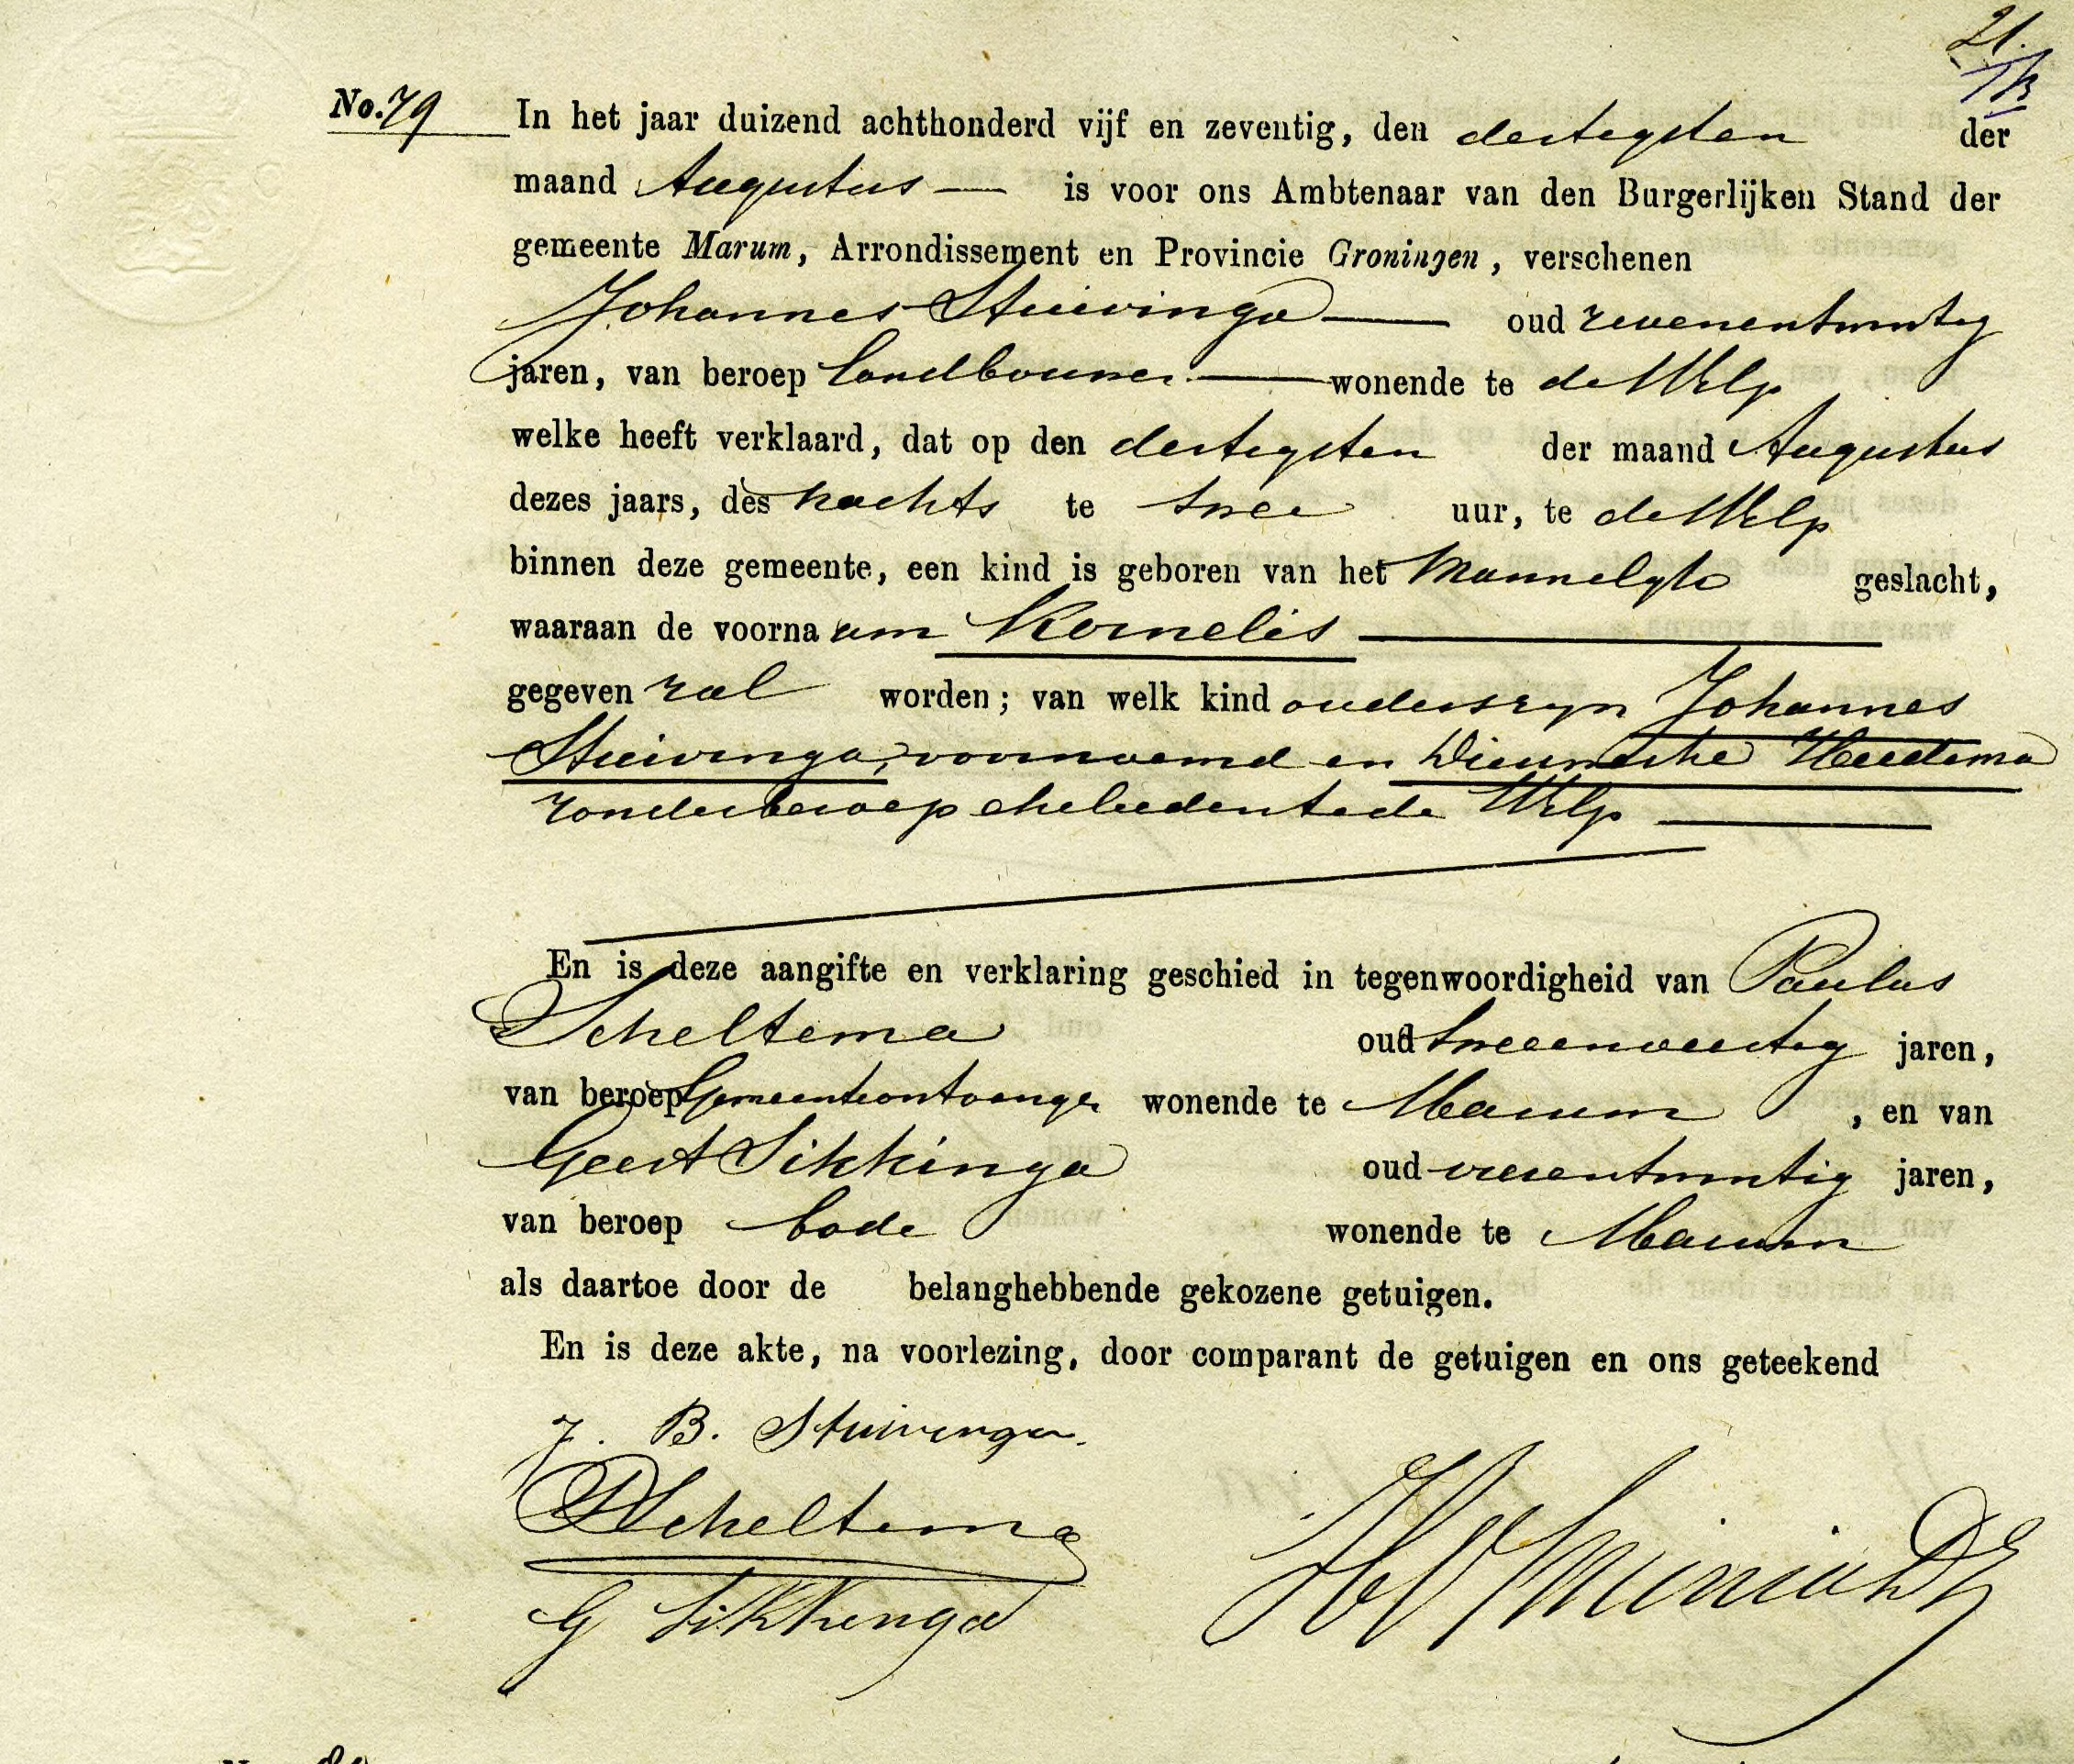 21.
No. 79 In het jaar duizend achthonderd vijf en zeventig, den dertigsten der
maand Augustus — is voor ons Ambtenaar van den Burgerlijken Stand der
gemeente Marum, Arrondissement en Provincie Groningen, verschenen
Johannes Stuivinga — oud zevenentwintig
jaren, van beroep landbouwer — wonende te de Wilp
welke heeft verklaard, dat op den dertigsten der maand Augustus
dezes jaars, des nachts te twee uur, te de Wilp
binnen deze gemeente, een kind is geboren van het Mannelyke geslacht,
waaraan de voorna am Kornelis —
gegeven zal worden; van welk kind ouders zyn Johannes
Stuivinga, voornoemd en Heidema
zonder beroep echelieden te de Wilp —
En is deze aangifte en verklaring geschied in tegenwoordigheid van Paulus
Scheltema oud tweeenveertig jaren,
van beroep Gemeenteontvanger wonende te Marum, en van
Geert Sikkinga oud vierentwintig jaren,
van beroep bode wonende te Marum
als daartoe door de belanghebbende gekozene getuigen.
En is deze akte, na voorlezing, door comparant de getuigen en ons geteekend
J. B. Stuivenga.
PScheltema
G Sikkenga